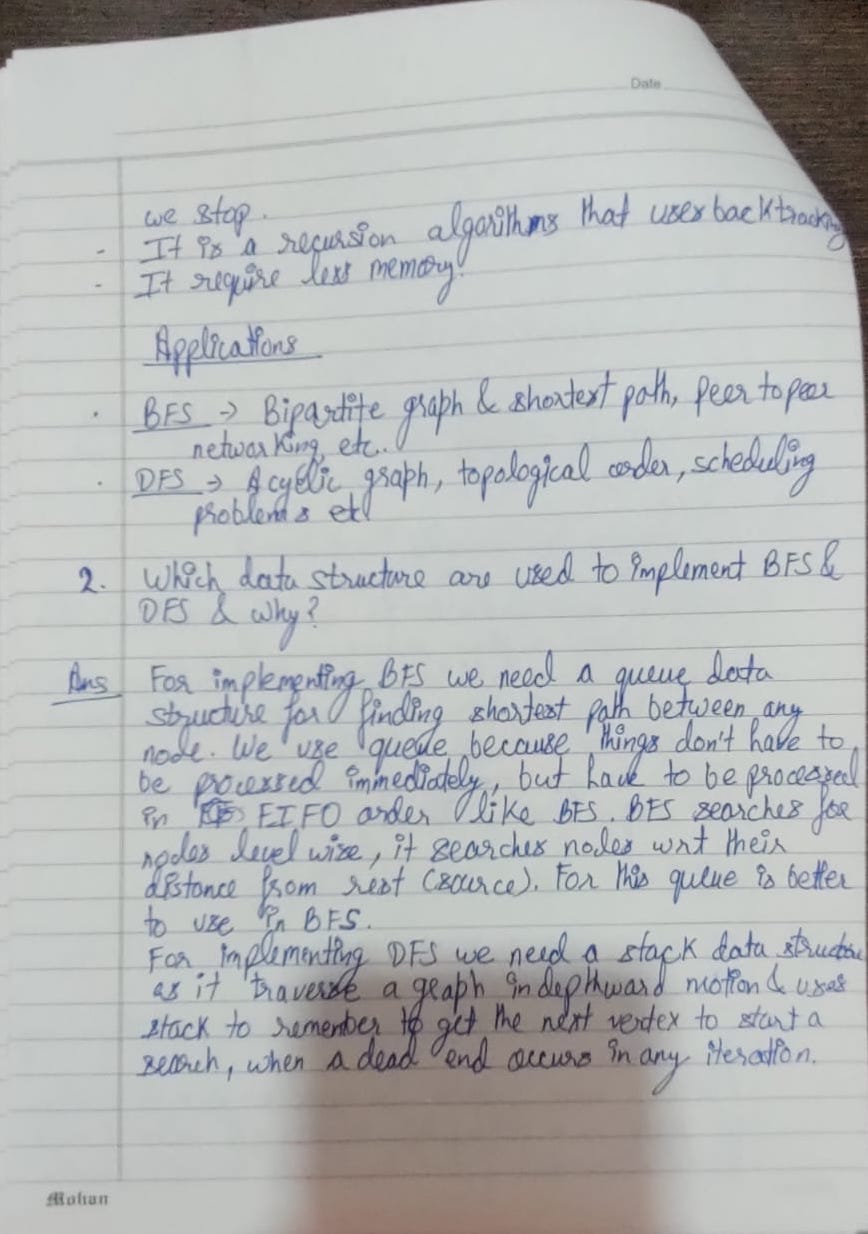 Date
we stop.
- It is a recursion algorithms that uses backtracking
- It require less memory.
Applications
. BFS → Bipartite graph & shortest path, peer to peer
networking, etc..
. DFS → Acyclic graph, topological order, scheduling
problems etc
2. Which data structure are used to implement BFS &
DFS & why?
Ans For implementing BFS we need a queue data
structure for finding shortest path between any
node. We use queue because things don't have to
be processed immediately, but have to be processed
in FIFO order like BFS. BFS searches for
nodes level wise, it searches nodes wrt their
distance from (source). For this queue is better
to use in BFS.
For implementing DFS we need a stack data structure
as it traverse a graph in depthward motion & uses
stack to remember to get the next vertex to start a
search, when a dead end occurs in any iteration.
Mohan